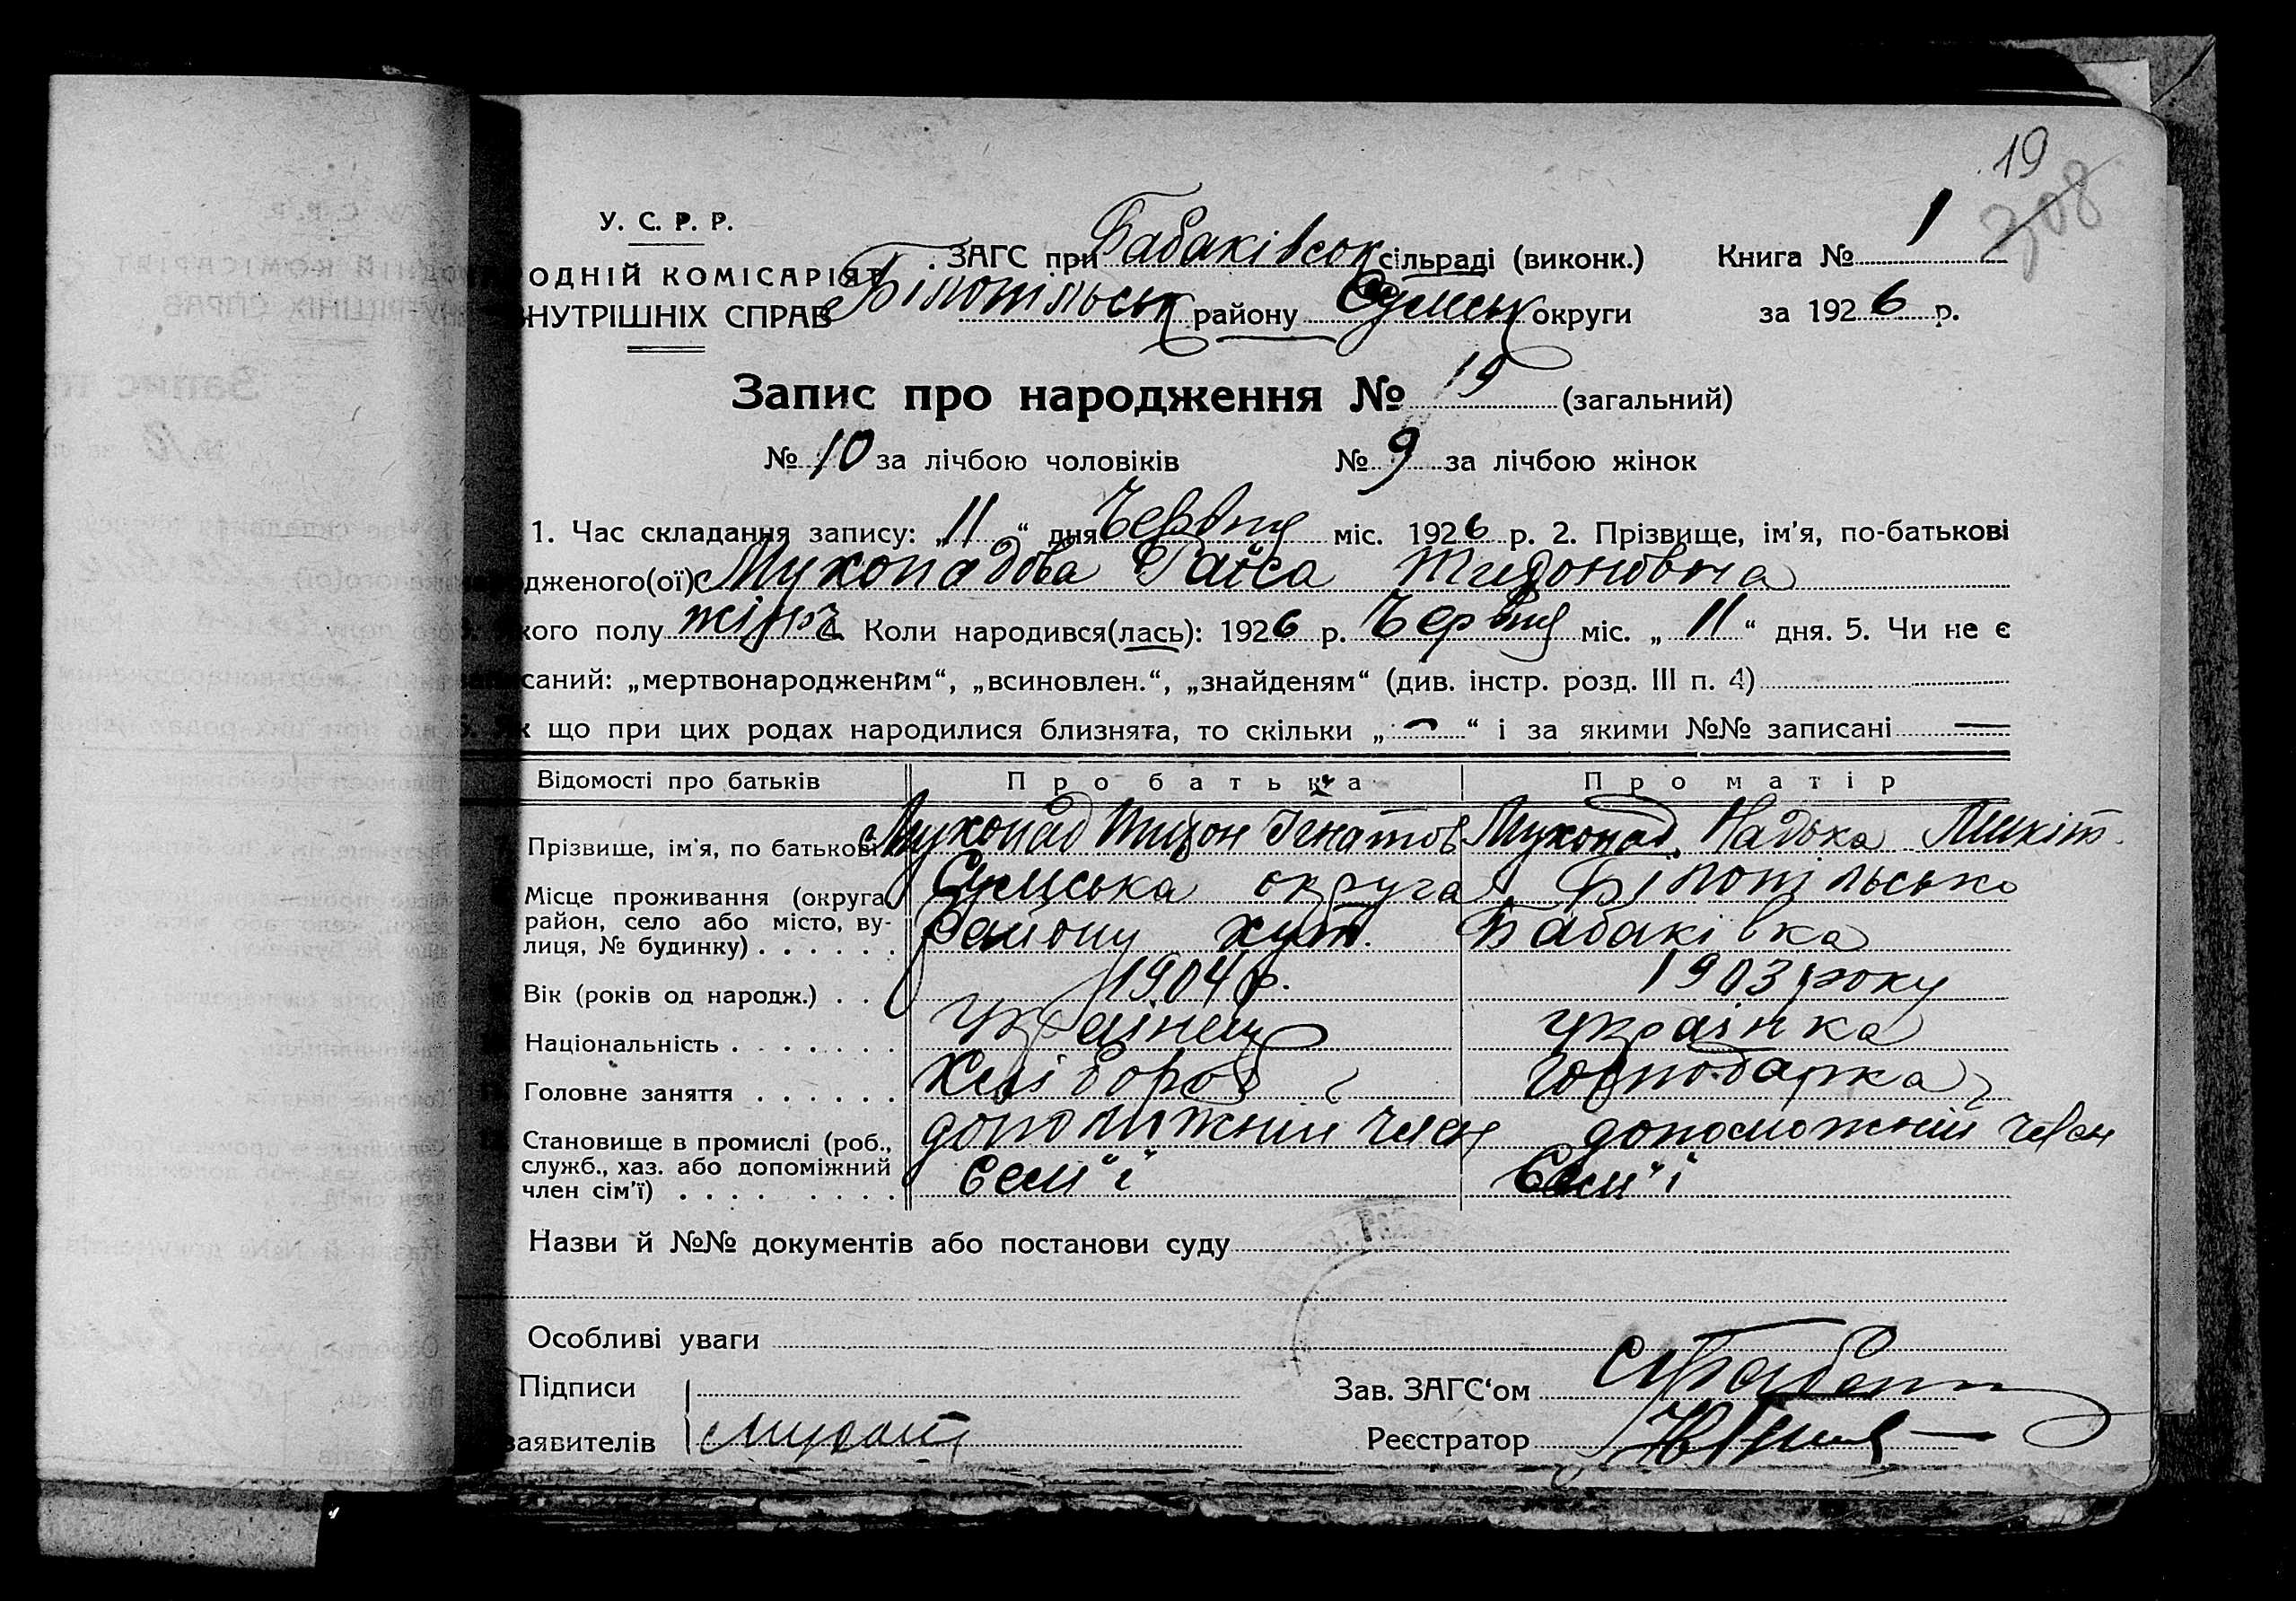 19
308
У. С. Р. Р.
ОДНІЙ КОМІСАРІЯТ
ВНУТРІШНІХ СПРАВ
ЗАГС при Бабаківськ сільраді (виконк.) Книга № 1
Білопільськ району Сумськ округи за 1926 р.
Запис про народження № 19 (загальний)
№ 10 за лічбою чоловіків № 9 за лічбою жінок
1. Час складання запису: „11“ дня Червня міс. 1926 р. 2. Прізвище, ім'я, по-батькові
дженого(ої) Мухопадова Раїса Тихоновна
кого полу жіноч. Коли народився(лась): 1926 р. Червня міс. „11“ дня. 5. Чи не є
саний: „мертвонародженим“, „всиновлен.“, „знайденям“ (див. інстр. розд. III п. 4)
що при цих родах народилися близнята, то скільки „—“ і за якими №№ записані
Відомості про батьків Про батька Про матір
Прізвище, ім'я, по батькові Мухопад Тихон Ігнатов Мухопад Надька Микіт.
Місце проживання (округа, район, село або місто, ву-лиця, № будинку) Сумська округа Білопільсько
району хут. Бабаківка
Вік (років од народж.) 1904 р. 1903 року
Національність українец українка
Головне заняття Хлібороб господарка
Становище в промислі (роб., допоміжний член допоможний член
служб., хаз. або допоміжний
член сім'ї) Сем"ї Сем"ї
Назви й №№ документів або постанови суду
Особливі уваги
Підписи Зав. ЗАГС'ом
заявителів Мухопад Реєстратор